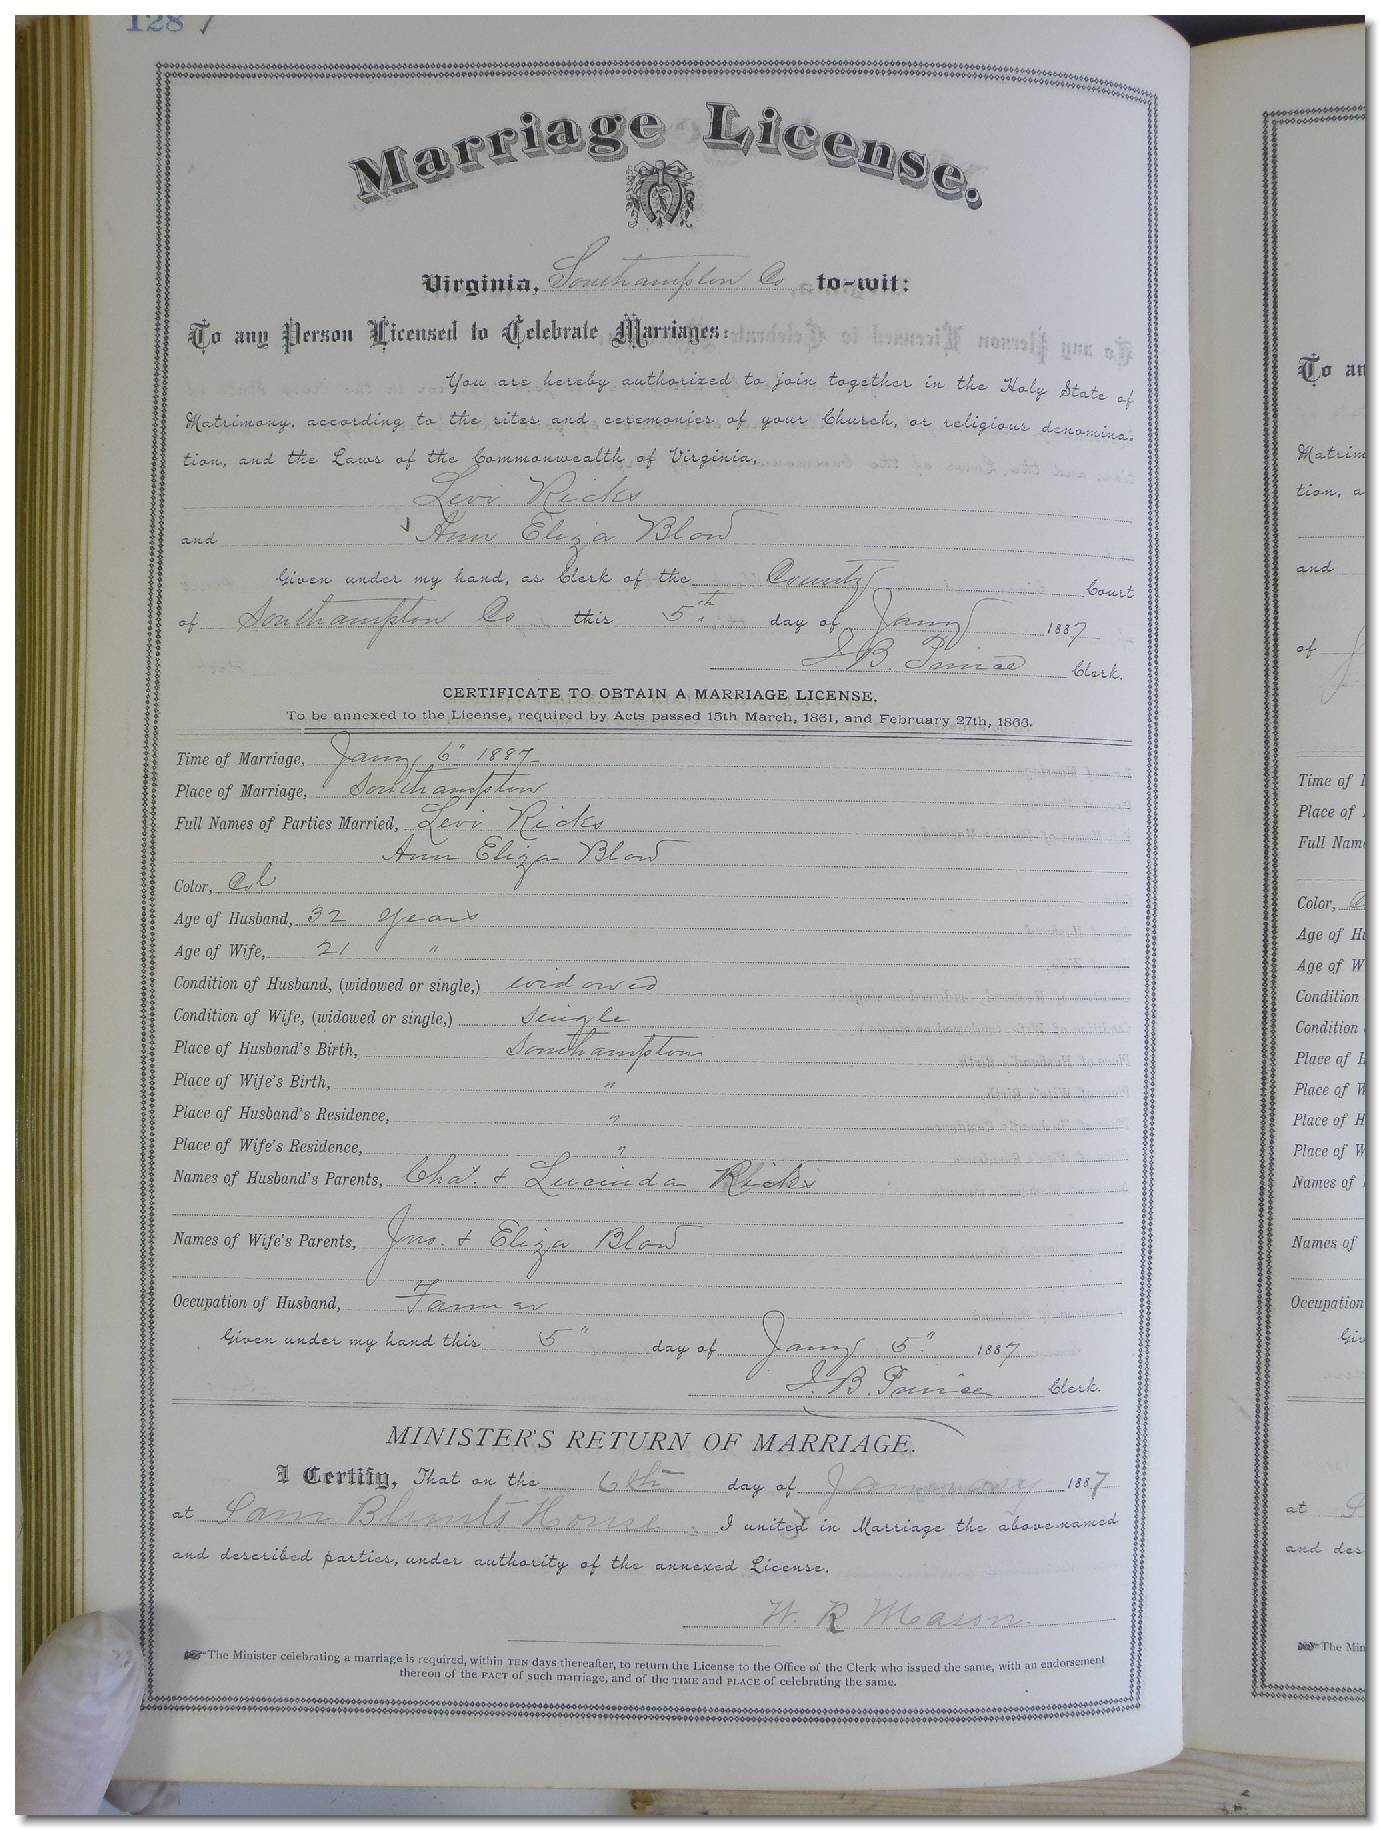 128
Marriage License.
Virginia, Southampton Co to-wit:
To any Person Licensed to Celebrate Marriages:
You are hereby authorized to join together in the Holy State of
Matrimony, according to the rites and ceremonies of your Church, or religious denomina-
tion, and the Laws of the Commonwealth of Virginia,
Levi Ricks
and Ann Eliza Blow
Given under my hand, as Clerk of the County Court
of Southampton Co this 5th day of Jany 1887
J B Prince Clerk.
CERTIFICATE TO OBTAIN A MARRIAGE LICENSE.
To be annexed to the License, required by Acts passed 15th March, 1861, and February 27th, 1866.
Time of Marriage, Jany 6" 1887
Place of Marriage, Southampton
Full Names of Parties Married, Levi Ricks
Ann Eliza Blow
Color, Col
Age of Husband, 32 years
Age of Wife, 21 "
Condition of Husband, (widowed or single,) widowed
Condition of Wife, (widowed or single,) single
Place of Husband's Birth, Southampton
Place of Wife's Birth, "
Place of Husband's Residence, "
Place of Wife's Residence, "
Names of Husband's Parents, Chas. & Lucinda Ricks
Names of Wife's Parents, Jno. & Eliza Blow
Occupation of Husband, Farmer
Given under my hand this 5" day of Jany 5" 1887
J. B. Prince Clerk.
MINISTER'S RETURN OF MARRIAGE.
I Certify, That on the 6th day of January 1887
at Sam Blunts House, I united in Marriage the above-named
and described parties, under authority of the annexed License.
W. R Mason
The Minister celebrating a marriage is required, within TEN days thereafter, to return the License to the Office of the Clerk who issued the same, with an endorsement
thereon of the FACT of such marriage, and of the TIME and PLACE of celebrating the same.
To an
Matrim
tion, a
and
of
Time of
Place of
Full Nam
Color,
Age of H
Age of W
Condition
Condition
Place of H
Place of W
Place of H
Place of W
Names of
Names of
Occupation
Giv
at
and des
The Min